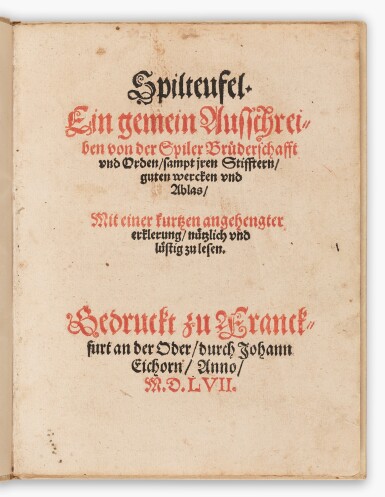 Spilteufel.
Ein gemein Ausschrei-
ben von der Spiler Brüderschafft
vnd Orden/ sampt jren Stifftern/
guten wercken vnd
Ablas/
Mit einer kurtzen angehengter
erklerung/ nützlich vnd
lüstig zu lesen.
Gedruckt zu Franck-
furt an der Oder/ durch Johann
Eichorn/ Anno/
M.D.LVII.